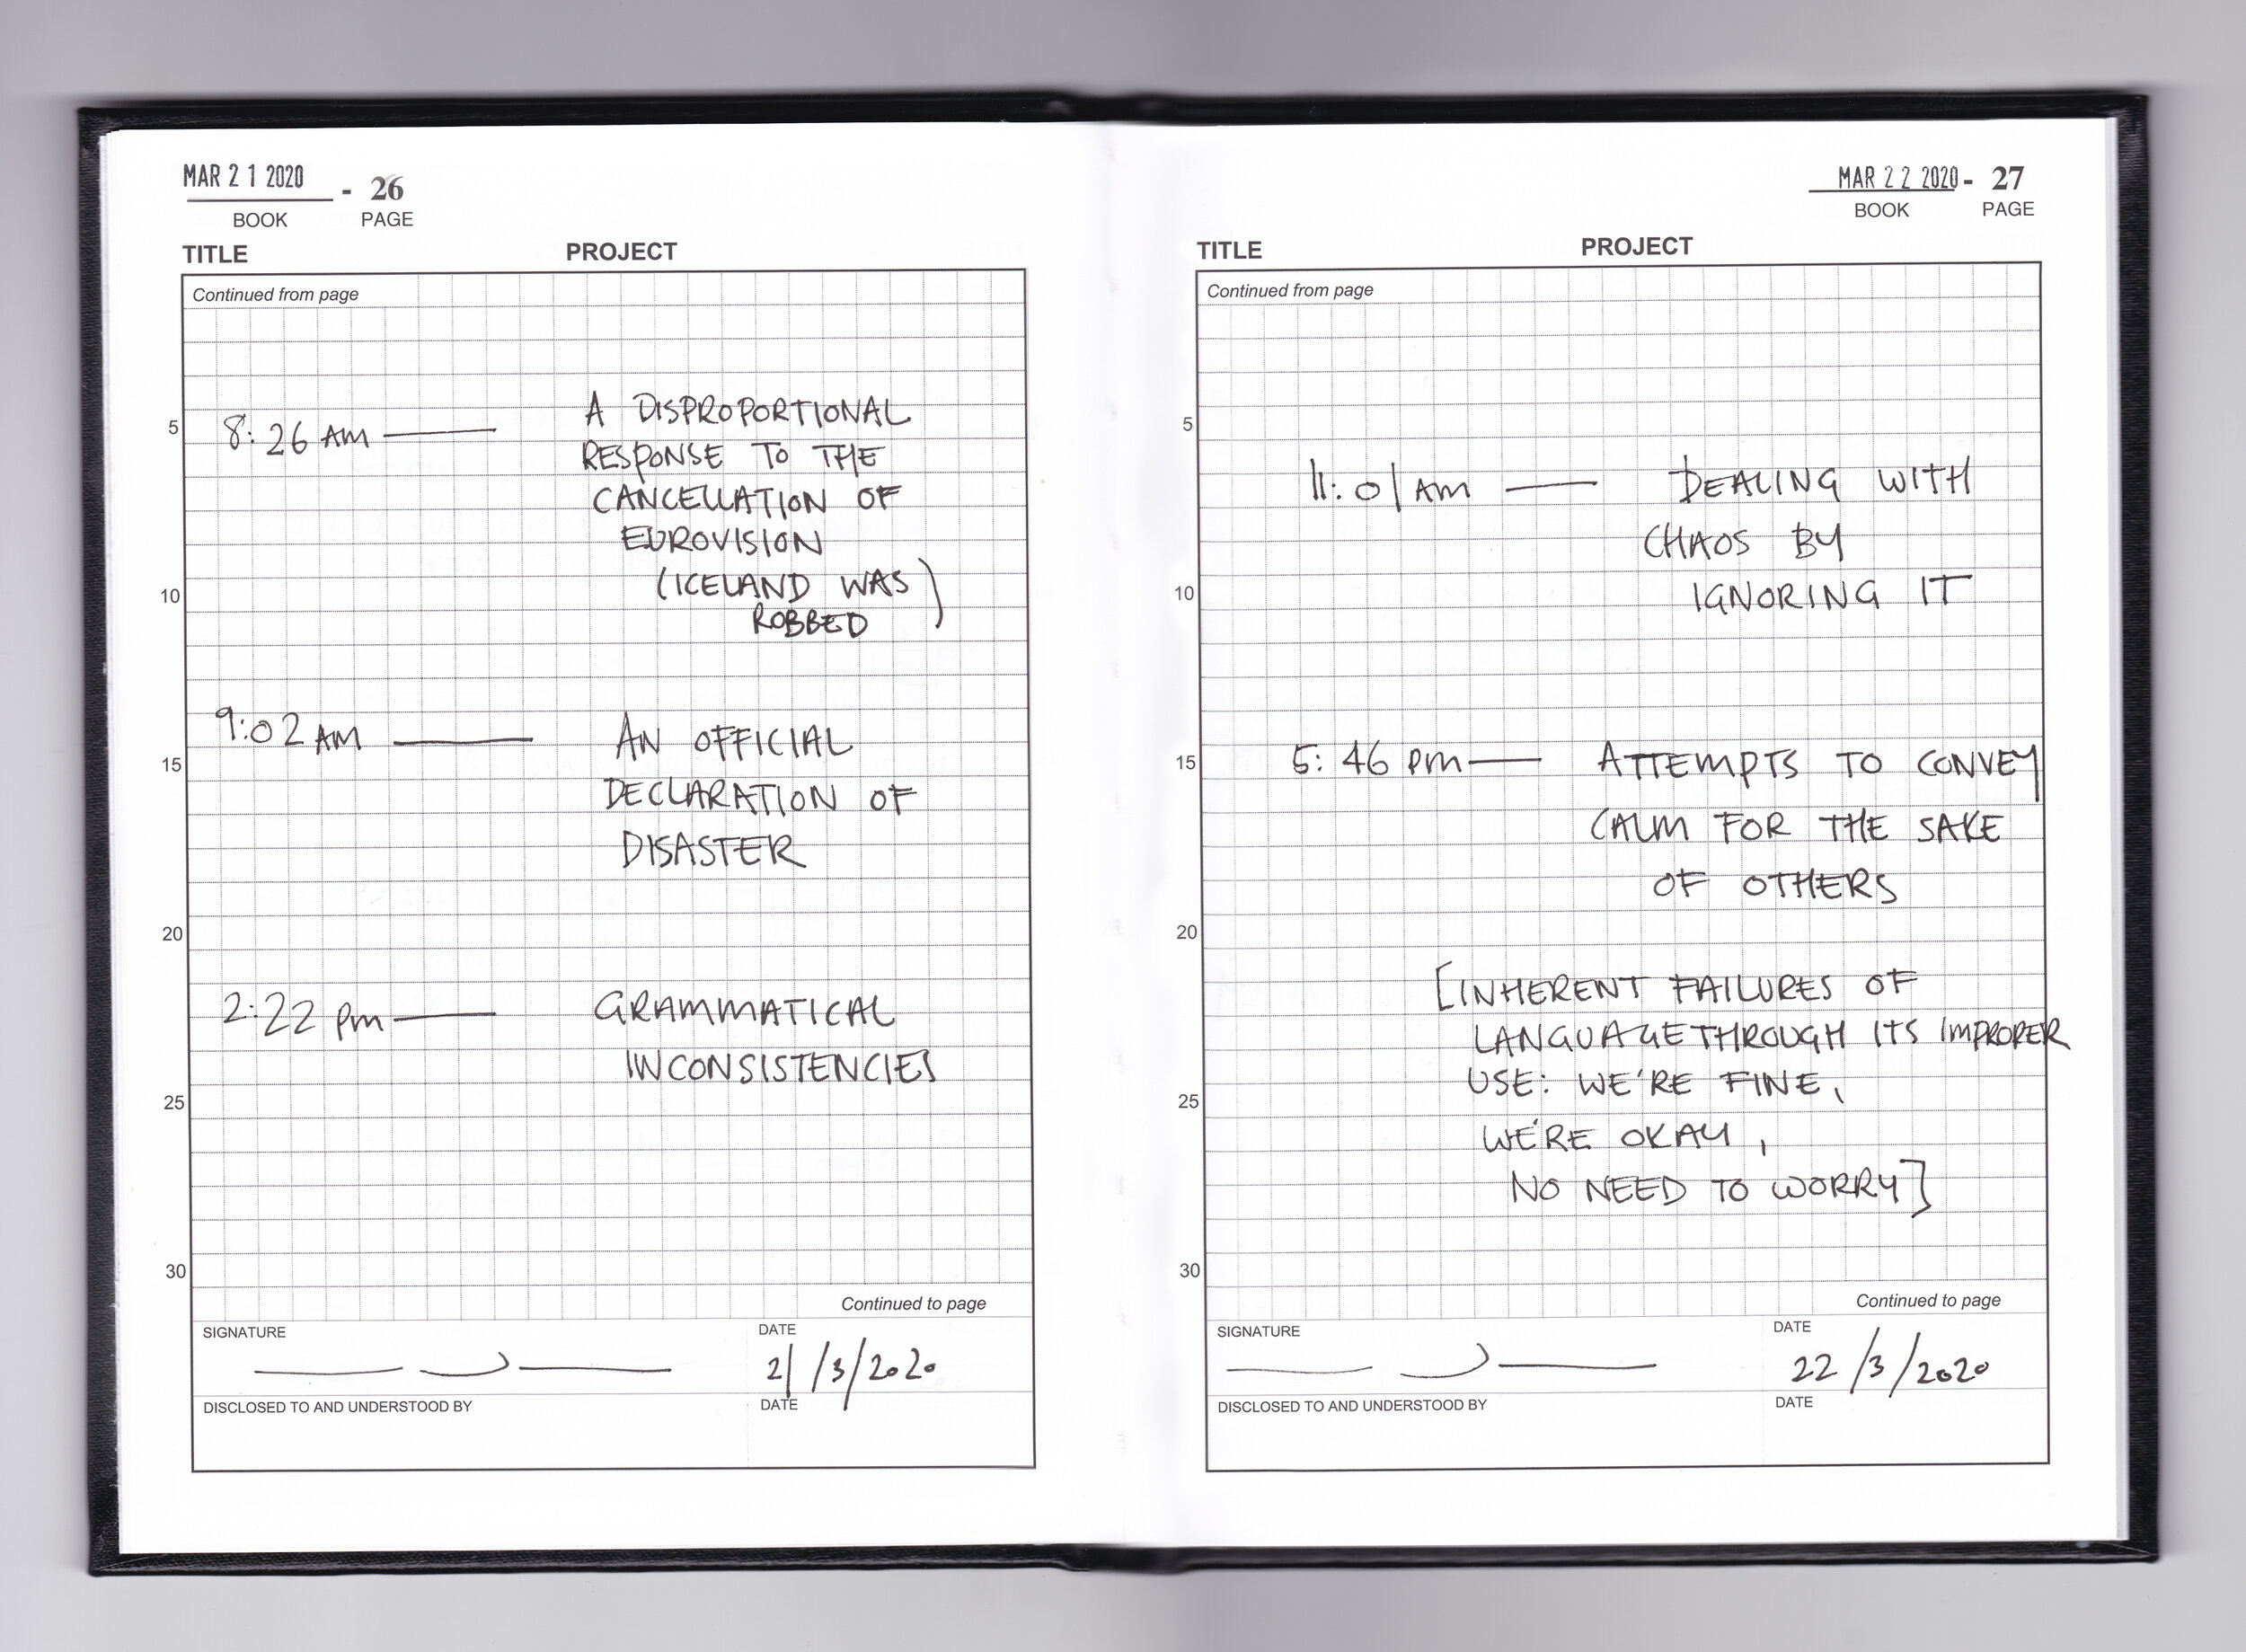 MAR 21 2020 - 26
BOOK PAGE
TITLE PROJECT
Continued from page
5
8:26 AM — A DISPROPORTIONAL
RESPONSE TO THE
CANCELLATION OF
EUROVISION
10
(ICELAND WAS
ROBBED)
9:02 AM — AN OFFICIAL
15
DECLARATION OF
DISASTER
20
2:22 PM — GRAMMATICAL
INCONSISTENCIES
25
30
Continued to page
SIGNATURE DATE
21/3/2020
DISCLOSED TO AND UNDERSTOOD BY DATE
MAR 22 2020 - 27
BOOK PAGE
TITLE PROJECT
Continued from page
5
11:01 AM — DEALING WITH
CHAOS BY
10
IGNORING IT
15
5:46 PM — ATTEMPTS TO CONVEY
CALM FOR THE SAKE
OF OTHERS
20
[INHERENT FAILURES OF
LANGUAGE THROUGH ITS IMPROPER
USE: WE'RE FINE,
25
WE'RE OKAY,
NO NEED TO WORRY]
30
Continued to page
SIGNATURE DATE
22/3/2020
DISCLOSED TO AND UNDERSTOOD BY DATE